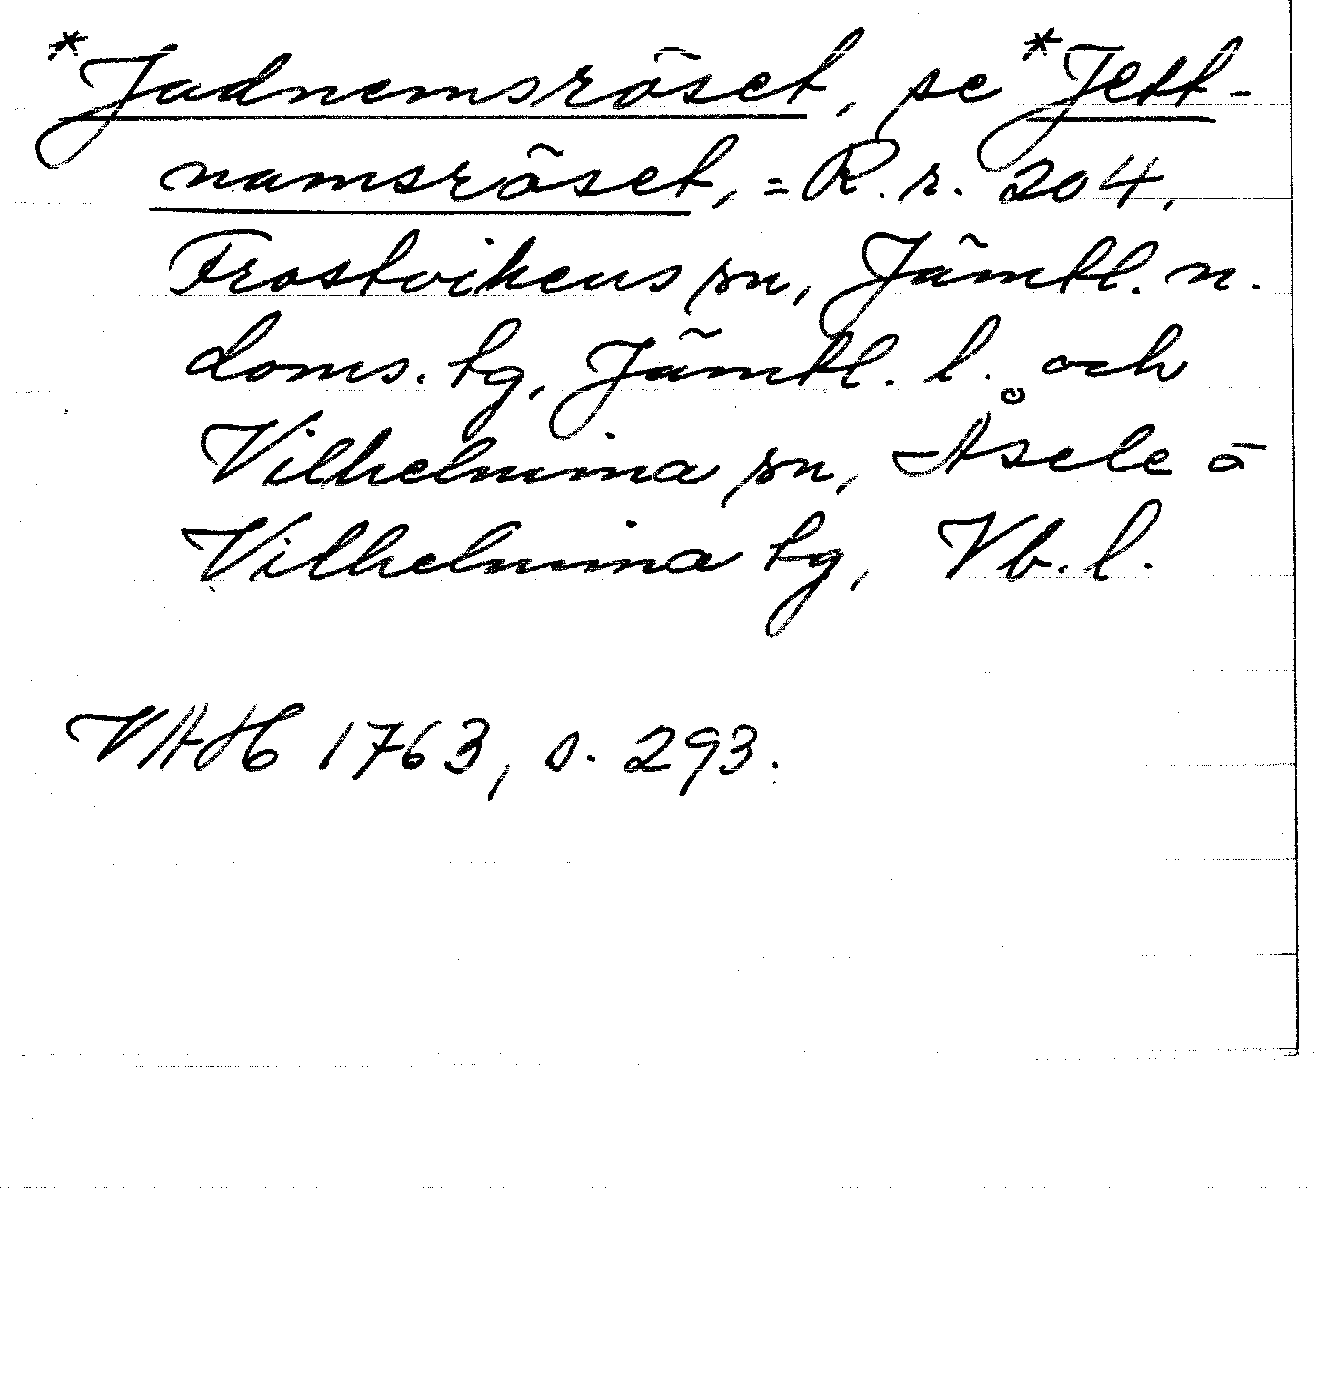 *Jadnemsröset, se *Jett-
namsröset, = R. r. 204,
Frostvikens sn, Jämtl. n.
doms. tg, Jämtl. l. och
Vilhelmina sn, Åsele o
Vilhelmina tg, Vb. l.
VAH 1763, s. 293.